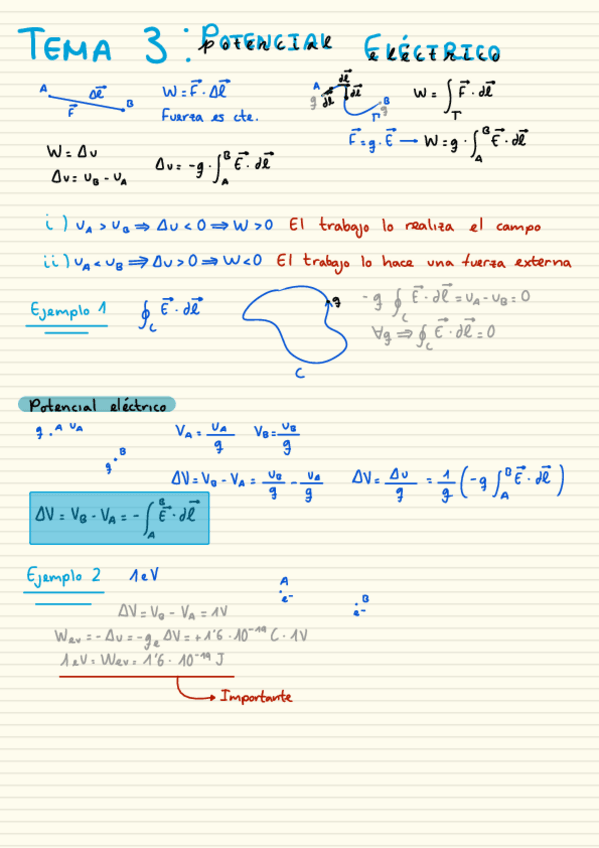 TEMA 3: POTENCIAL ELÉCTRICO
potencial eléctrico
A Δl⃗ B F⃗
W = F⃗ · Δl⃗
Fuerza es cte.
A q dl⃗ dl⃗ dl⃗ B q Γ
W = ∫_Γ F⃗ · dl⃗
F⃗ = q · E⃗ → W = q · ∫_A^B E⃗ · dl⃗
W = Δu
Δu = u_B - u_A
Δu = -q · ∫_A^B E⃗ · dl⃗
i) u_A > u_B ⇒ Δu < 0 ⇒ W > 0 El trabajo lo realiza el campo
ii) u_A < u_B ⇒ Δu > 0 ⇒ W < 0 El trabajo lo hace una fuerza externa
Ejemplo 1 ∮_C E⃗ · dl⃗
q
C
-q ∮_C E⃗ · dl⃗ = u_A - u_B = 0
∀q ⇒ ∮_C E⃗ · dl⃗ = 0
Potencial eléctrico
q . A u_A
q . B
V_A = u_A/q V_B = u_B/q
ΔV = V_B - V_A = u_B/q - u_A/q ΔV = Δu/q = 1/q (-q ∫_A^B E⃗ · dl⃗)
ΔV = V_B - V_A = - ∫_A^B E⃗ · dl⃗
Ejemplo 2 1eV
A
e-
B
e-
ΔV = V_B - V_A = 1V
W_ev = -Δu = -q_e ΔV = +1'6 · 10^-19 C · 1V
1eV = W_ev = 1'6 · 10^-19 J
Importante